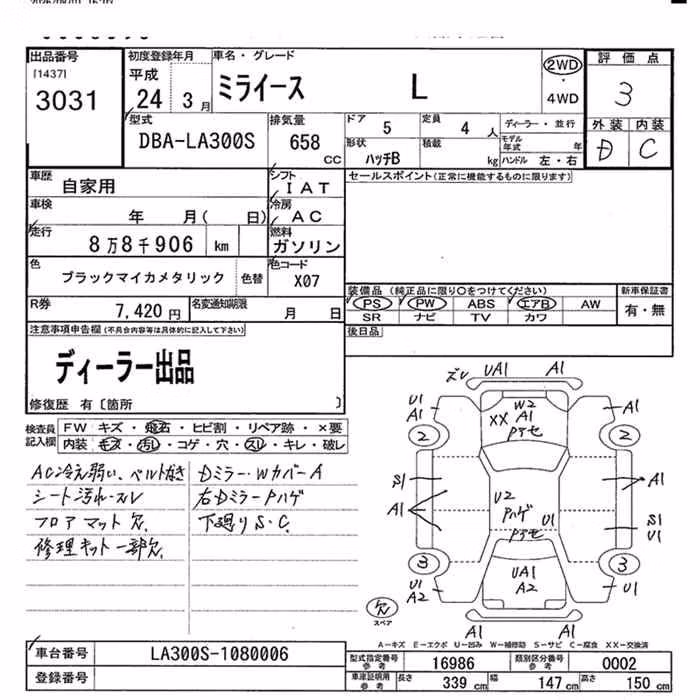 出品番号 初度登録年月 車名・グレード 評価点
[1437] 平成 ミライース L 2WD 3
3031 24 3月 4WD
外装 内装
型式 排気量 ドア 5 定員 4人 ディーラー・並行 D C
DBA-LA300S 658 CC 形状 ハッチB 積載 kg モデル年式 年
ハンドル 左・右
車歴 自家用 シフト IAT セールスポイント(正常に機能するものに限ります)
車検 年 月( 日) 冷房 AC
走行 8万8千906 km 燃料 ガソリン
色 ブラックマイカメタリック 色替 色コード X07
装備品 (純正品に限り○をつけてください) 新車保証書
PS PW ABS エアB AW 有・無
SR ナビ TV カワ
R券 7,420円 名変通知期限 月 日
後日品
注意事項申告欄(不具合内容等は具体的に記入して下さい)
ディーラー出品
修復歴 有〔箇所 〕
検査員記入欄 FW キズ・飛石・ヒビ割・リペア跡・×要
内装 モス・汚レ・コゲ・穴・スレ・キレ・破レ
AC冷え弱い、ベルト鳴き Dミラー・Wカバー A
シート汚れ・スレ 右Dミラー Pハゲ
フロアマット欠 下廻り S.C.
修理キット一部欠
ズレ UA1 A1
U1 A1 W2 A1
XX A1
Pアセ
2 2
S1 A1
A1 U2
Pハゲ U1 S1
Pアセ U1
3 3
U1 UA1 U1
A2 A2
欠 A1 A1
スペア
A－キズ E－エクボ U－凹み W－補修跡 S－サビ C－腐食 XX－交換済
車台番号 LA300S-1080006
登録番号
型式指定番号 参考 16986 類別区分番号 参考 0002
車庫証明用 参考 長さ 339 cm 幅 147 cm 高さ 150 cm